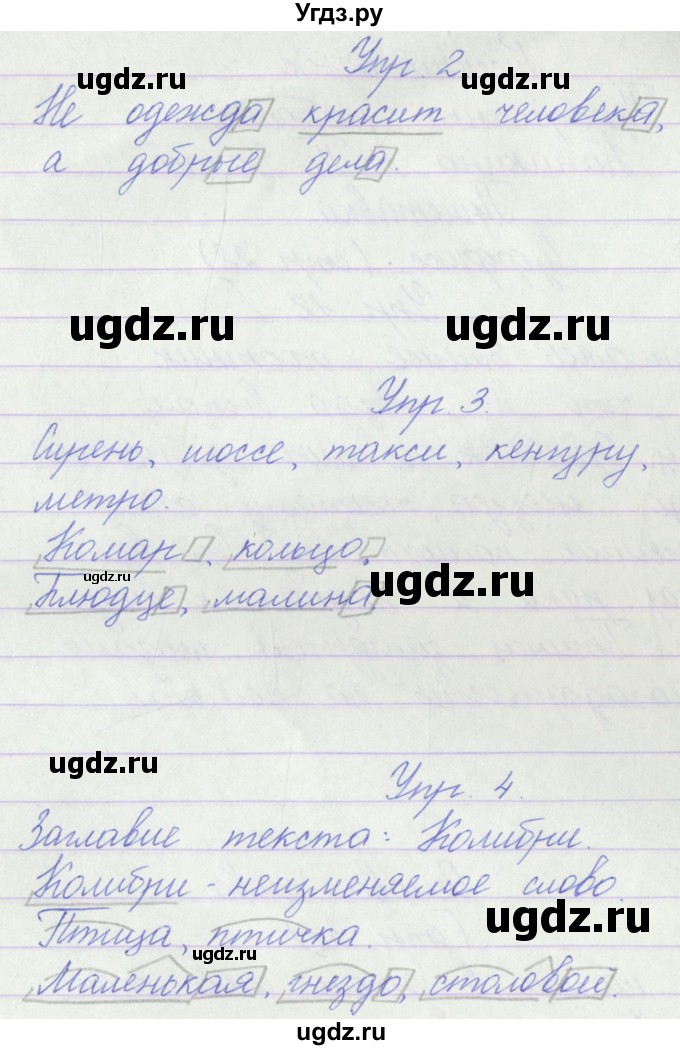 Угдз.ру
Упр. 2
Не одежда красит человека,
а добрые дела.
Упр. 3.
Сирень, шоссе, такси, кенгуру,
метро.
Комар, кольцо,
Блюдце, малина
Упр. 4.
Заглавие текста: Колибри.
Колибри - неизменяемое слово.
Птица, птичка.
Маленькая, гнездо, столовой.
ugdz.ru
ugdz.ru
ugdz.ru
ugdz.ru
ugdz.ru
ugdz.ru
ugdz.ru
ugdz.ru
ugdz.ru
ugdz.ru